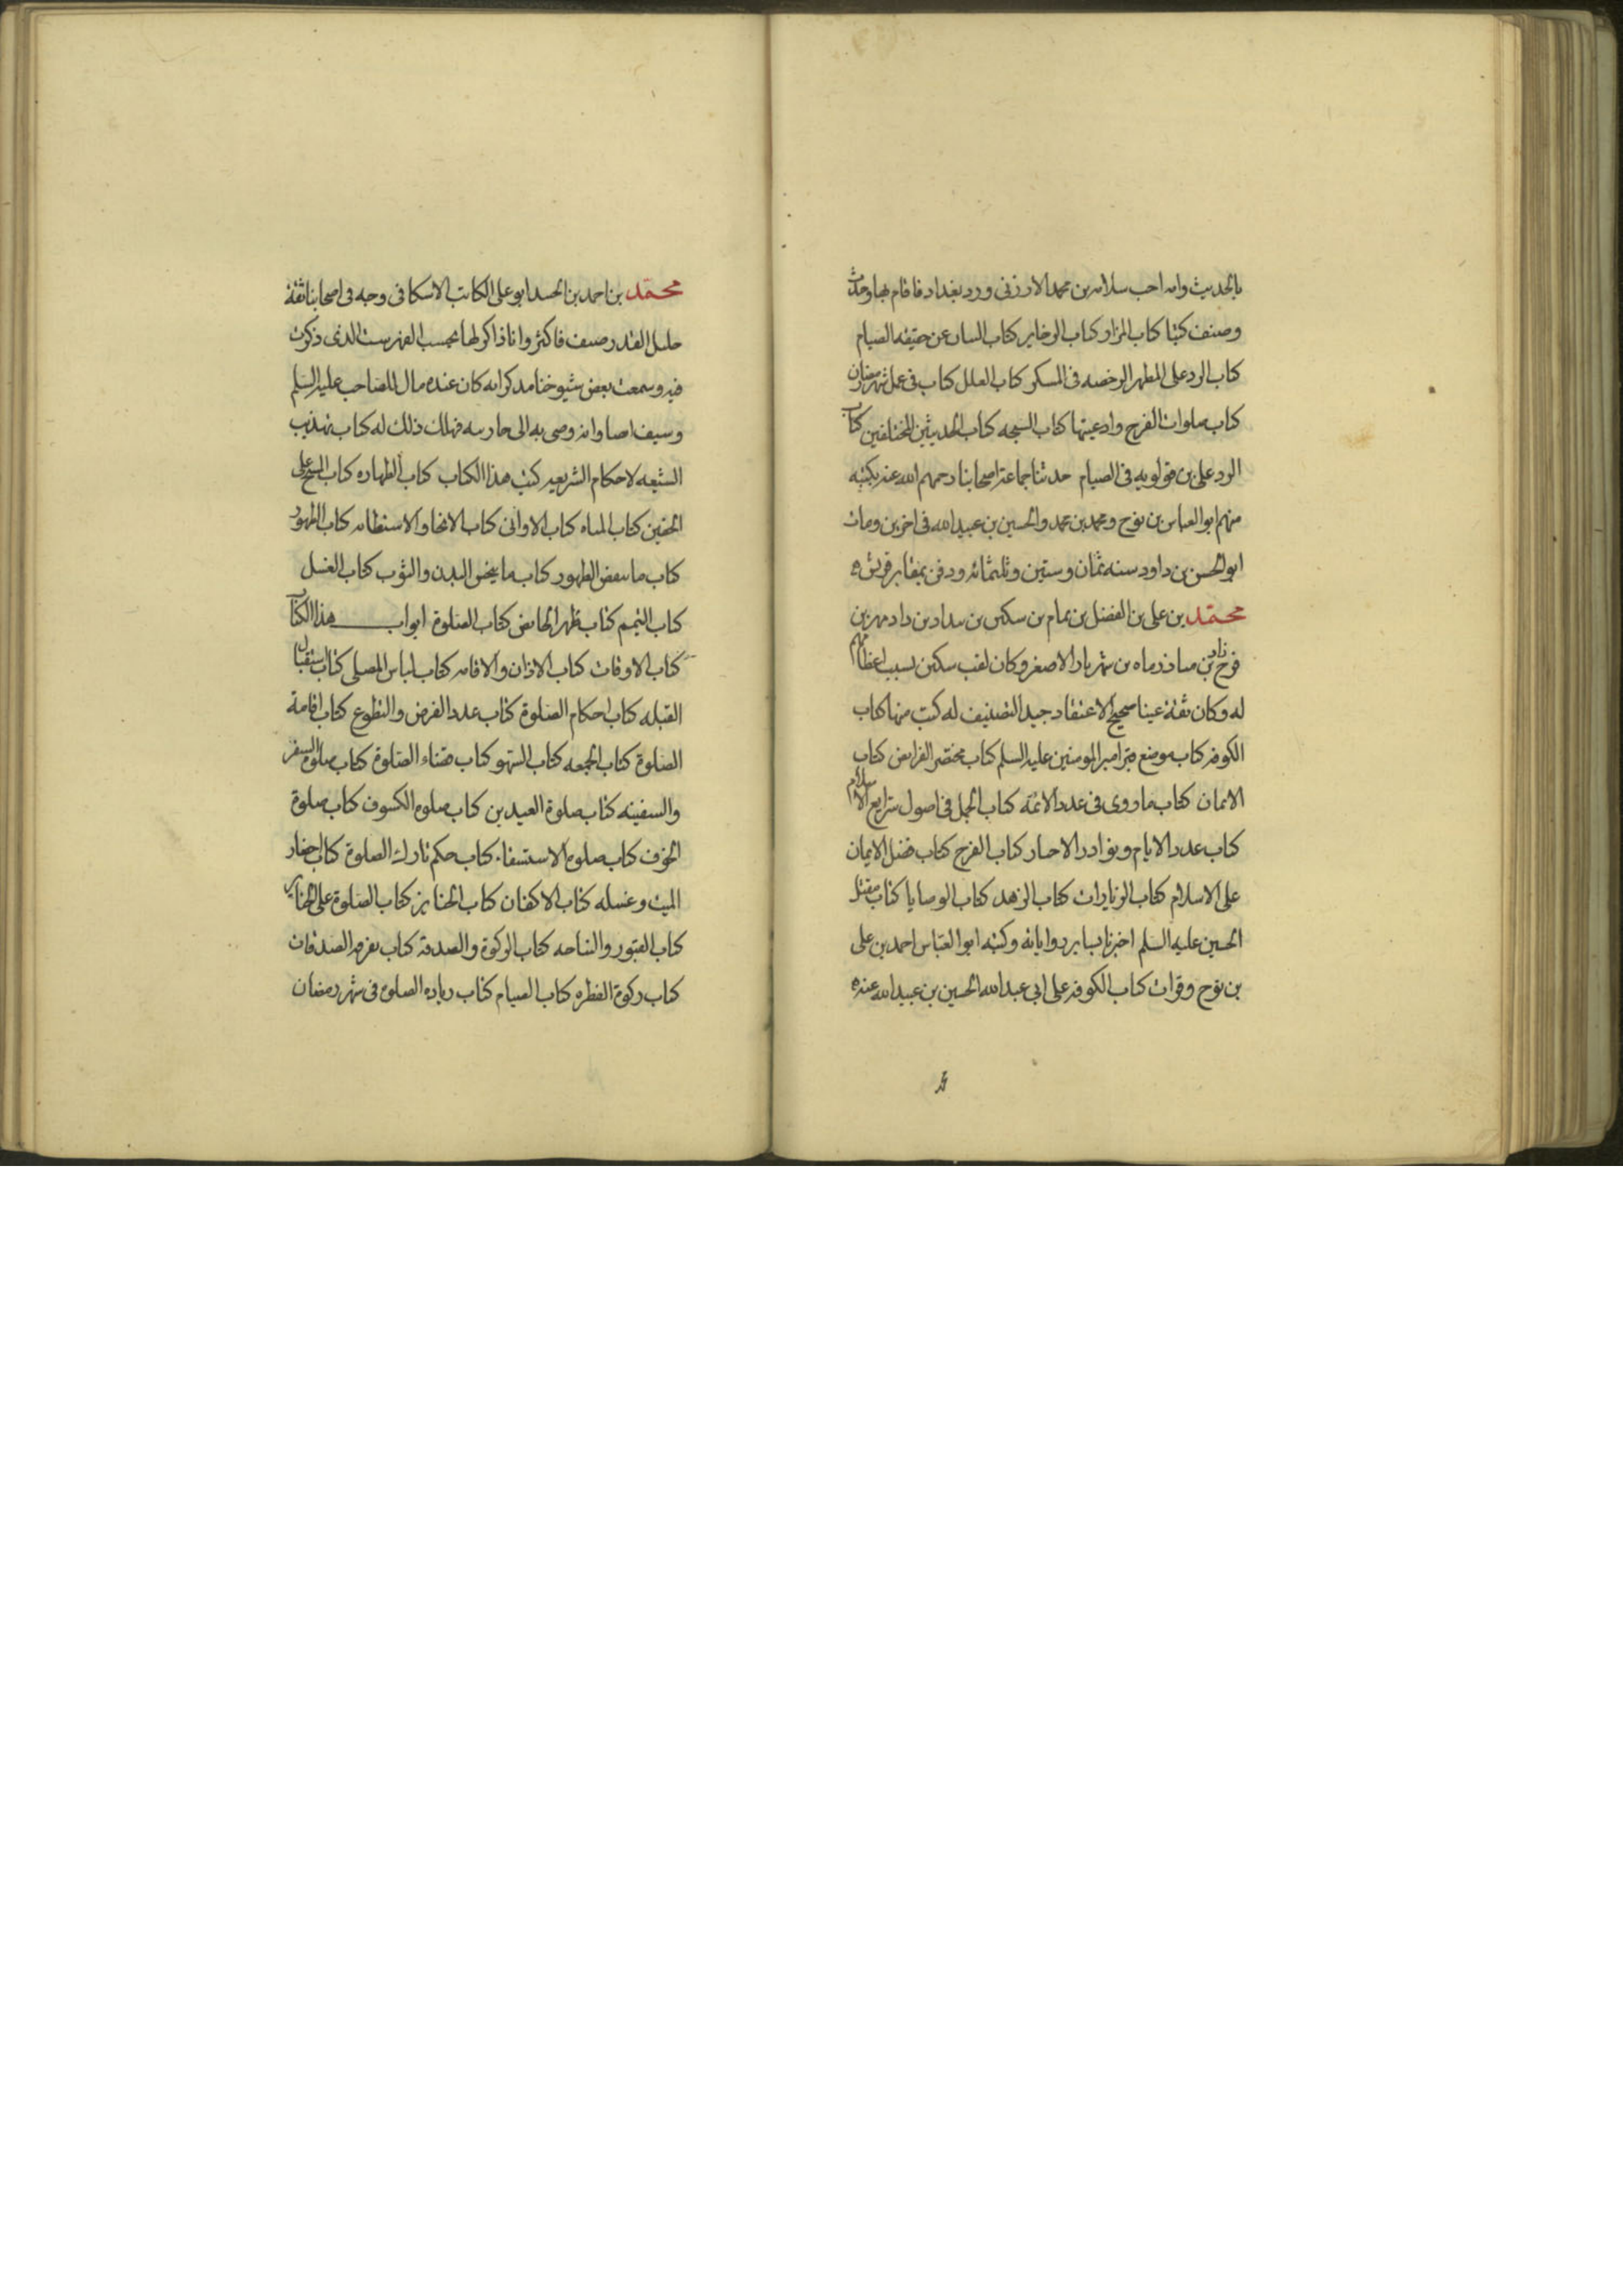 بالحديث وامه اخت سلامه بن محمد الارزنى وورد بغداد فاقام بها وحدث
وصنف كتبا كتاب المزار كتاب الذخاير كتاب البيان عن حقيقه الصيام
كتاب الرد على المظهر الرخصه فى المسكر كتاب العلل كتاب فى عمل شهر رمضان
كتاب صلوات الفرج وادعيتها كتاب السبحه كتاب الحديثين المختلفين كتاب
الرد على بن قولويه فى الصيام حدثنا جماعة اصحابنا رحمهم الله عنه بكتبه
منهم ابو العباس بن نوح ومحمد بن محمد والحسين بن عبيد الله فى اخرين ومات
ابو الحسن بن داود سنه ثمان وستين وثلثمائه ودفن بمقابر قريش ه
محمد بن على بن الفضل بن تمام بن سكين بن بنداد بن داد مهر بن
فرخ زاد بن مياذرماه بن شهريار الاصغر وكان لقب سكين بسبب اعظامهم
له وكان ثقة عينا صحيح الاعتقاد جيد التصنيف له كتب منها كتاب
الكوفه كتاب موضع قبر امير المومنين عليه السلم كتاب مختصر الفرايض كتاب
الايمان كتاب ما روى فى عدد الائمه كتاب الجمل فى اصول شرايع الاسلام
كتاب عدد الايام ونوادر الاخبار كتاب الفرج كتاب فضل الايمان
على الاسلام كتاب الزيارات كتاب الزهد كتاب الوصايا كتاب مقتل
الحسين عليه السلم اخبرنا بساير رواياته وكتبه ابو العباس احمد بن على
بن نوح وقرات كتاب الكوفه على ابى عبد الله الحسين بن عبيد الله عنه ه
محمد بن احمد بن الجنيد ابو على الكاتب الاسكافى وجه فى اصحابنا ثقة
جليل القدر صنف فاكثر وانا ذاكر لها بحسب الفهرست الذى ذكرت
فيه وسمعت بعض شيوخنا يذكر انه كان عنده مال للصاحب عليه السلم
وسيف ايضا وانه وصى به الى جاريته فهلك ذلك له كتاب تهذيب
الشيعه لاحكام الشريعه كتب هذا الكتاب كتاب الطهاره كتاب المسح على
الخفين كتاب المياه كتاب الاوانى كتاب الانجا والاستطابه كتاب الطهور
كتاب ما ينقض الطهور كتاب ما ينجس البدن والثوب كتاب الغسل
كتاب التيمم كتاب طهر الحايض كتاب الصلوة ابواب هذا الكتاب
كتاب الاوقات كتاب الاذان والاقامه كتاب لباس المصلى كتاب استقبال
القبله كتاب احكام الصلوة كتاب عدد الفرض والتطوع كتاب اقامة
الصلوة كتاب الجمعه كتاب السهو كتاب قضاء الصلوة كتاب صلوة السفر
والسفينه كتاب صلوة العيدين كتاب صلوه الكسوف كتاب صلوة
الخوف كتاب صلوه الاستسقاء كتاب حكم تارك الصلوة كتاب احضار
الميت وغسله كتاب الاكفان كتاب الجنايز كتاب الصلوة على الجنايز
كتاب القبور والنياحه كتاب الزكوة والصدقة كتاب تفرقه الصدقات
كتاب زكوة الفطره كتاب الصيام كتاب زياده الصلوه فى شهر رمضان